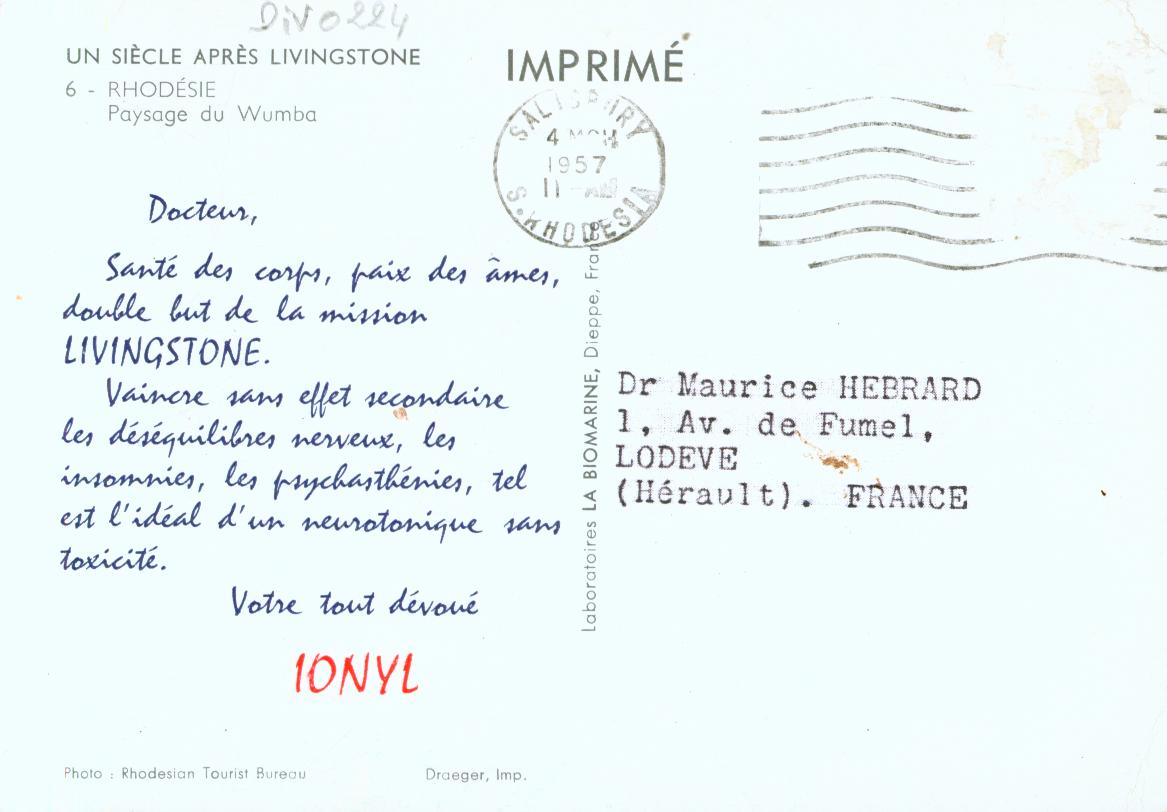 DIV0224
UN SIÈCLE APRÈS LIVINGSTONE
6 - RHODÉSIE
Paysage du Wumba
IMPRIMÉ
SALISBURY
4
1957
11 - AM
S. RHODESIA
Docteur,
Santé des corps, paix des âmes,
double but de la mission
LIVINGSTONE.
Vaincre sans effet secondaire
les déséquilibres nerveux, les
insomnies, les psychasthénies, tel
est l'idéal d'un neurotonique sans
toxicité.
Votre tout dévoué
IONYL
Laboratoires LA BIOMARINE, Dieppe,
Dr Maurice HEBRARD
1, Av. de Fumel,
LODEVE
(Hérault). FRANCE
Photo : Rhodesian Tourist Bureau
Draeger, Imp.